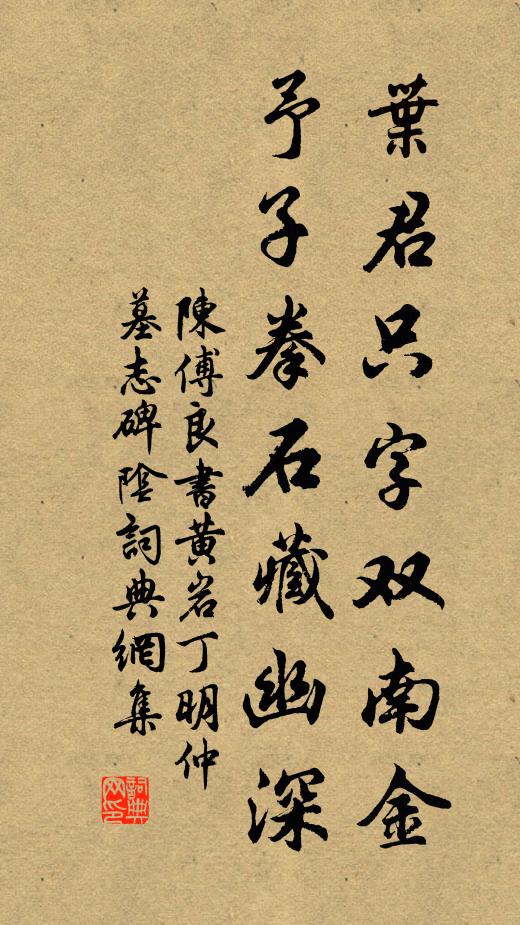 葉君只字双南金
予子拳石藏幽深
陳傅良書黃岩丁明仲
墓志碑陰詞典網集
詞典网印